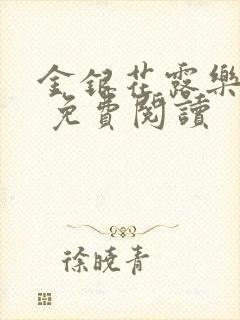 金銀花露樂
免費閱讀
徐曉青